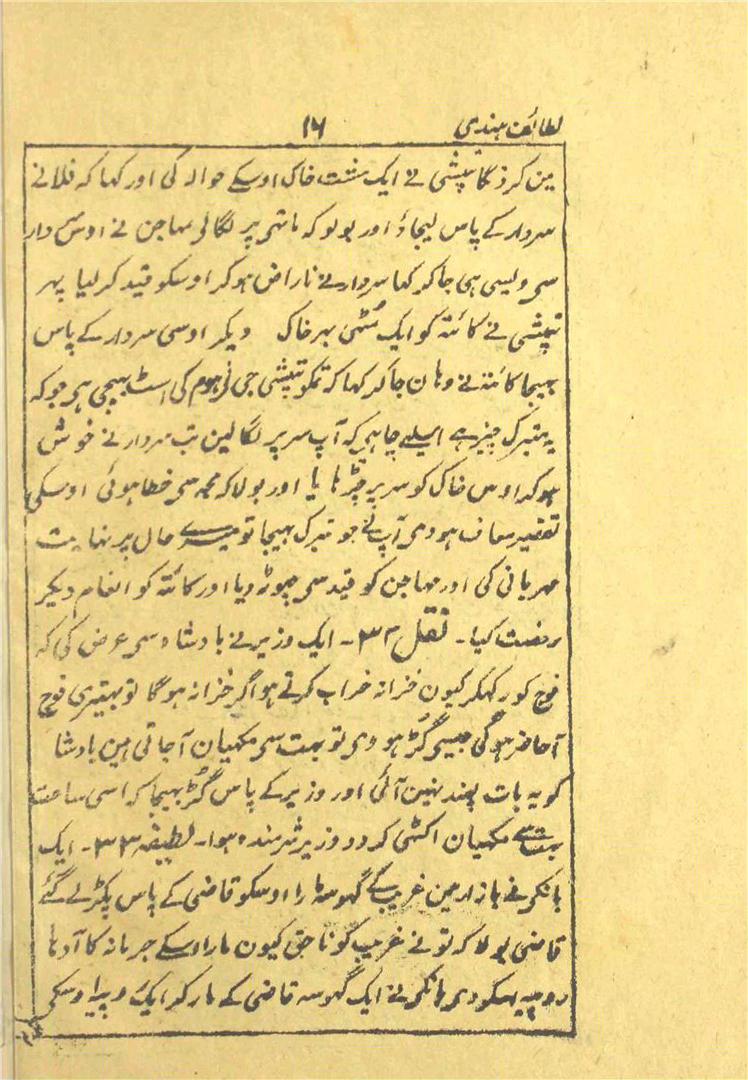 لطائف ہندی ۱۶
مین کردنگا تپشی نے ایک مشت خاک اوسکے حوالہ کی اور کہا کہ فلانے
سردار کے پاس لیجاؤ اور بولو کہ ماتھی پر لگالی مہاجن نے اوس سردار
سی ویسی ہی جاکر کہا سردار نے ناراض ہوکر اوسکو قید کرلیا پہر
تپشی نے کائتہ کو ایک مُٹہی بہر خاک دیکر اوسی سردار کے پاس
بہیجا کائتہ نے وہان جاکر کہا کہ تمکو تپشی جی نی ہوم کی بہیجی ہی جوکہ
یہ متبرک چیز ہے اسلیے چاہیی کہ آپ سر پر لگالین تب سردار نے خوش
ہوکر اوس خاک کو سر پر چڑہایا اور بولا کہ مجہ سی خطا ہوئی اوسکی
تقصیر معاف ہووی آپ نے جو تبرک بہیجا تو میرے حال پر نہایت
مہربانی کی اور مہاجن کو قید سی چہوڑ دیا اور کائتہ کو انعام دیکر
رخصت کیا۔ نقل ۳۲۔ ایک وزیر نے بادشاہ سی عرض کی کہ
فوج کو رکہکر کیون خزانہ خراب کرتے ہو اگر خزانہ ہوگا تو بہتیری فوج
آحاضر ہوگی جیسی گُڑ ہووی تو بہت سی مکہیان آجاتی ہین بادشا
کو یہ بات پسند نہین آئی اور وزیر کے پاس گُڑ بہیجا کہ اسی ساعت
بہت سے مکہیان اکٹہی کردو وزیر شرمندہ ہوا۔ لطیفہ ۳۳۔ ایک
بانکی نے بازار مین غریب کے گہوسہ مارا اوسکو قاضی کے پاس پکڑ لے گئے
قاضی بولا کہ تو نے غریب کو ناحق کیون مارا اسکے جرمانہ کا آدہا
روپیہ اسکو دی بانکی نے ایک گہوسہ قاضی کے مار کر ایک روپیا اوسکی